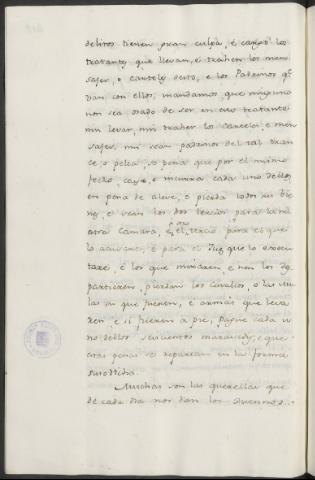 delitos tienen gran culpa, é cargo los
tratantes que llevan, é trahen los men
sages, o carteles desto, e los Padrinos qᵉ
van con ellos, mandamos que ninguno
non sea osado de ser en esto tratante
nin levar, nin traher los carteles e men
sages, nin sean padrinos del tal tran
ce, o pelea, so pena que por el mismo
fecho, caya, e incurra cada uno dellos
en pena de aleve, e pierda todos sus bie
nes, e sean los dos tercios para la nu
estra Camara, e el otro tercio para el que
lo acusare, é para el Juez que lo execu
tare, é los que miraren e non los
partieren, pierdan los Cavallos, o las mu
las en que fueren, e armas que leva
ren e si fueren a pie, pague cada u
no dellos seiscientos maravedis, e que
estas penas se repartan en la forma
susodicha.
Muchas son las querellas que
de cada dia nos dan los